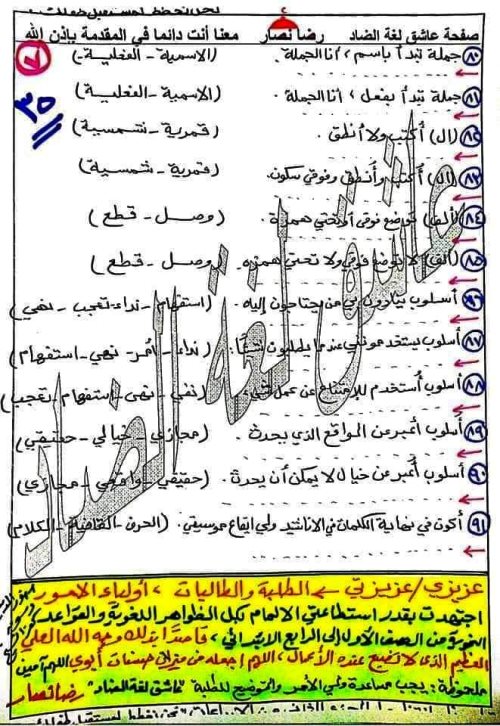 صفحة عاشق لغة الضاد رضا نصار معنا أنت دائما في المقدمة بإذن الله
٨٠ جملة تبدأ باسم، أنا الجملة. (الاسمية - الفعلية)
٨١ جملة تبدأ بفعل، أنا الجملة. (الاسمية - الفعلية)
٣٥
٨٢ (ال) أكتب ولا أنطق. (قمرية - شمسية)
٨٣ (ال) أكتب وأنطق وفوقي سكون. (قمرية - شمسية)
٨٤ (ألف) توضع فوقي أو تحتي همزة. (وصل - قطع)
٨٥ (ألف) لا توضع فوقي ولا تحتي همزة. (وصل - قطع)
٨٦ أسلوب ينادون بي من يحتاجون إليه. (استفهام - نداء - تعجب - نهي)
٨٧ أسلوب يستخدمونني عندما يطلبون شيئا. (نداء - أمر - نهي - استفهام)
٨٨ أسلوب أستخدم للامتناع عن عمل شيء. (نفي - نهي - استفهام - تعجب)
٨٩ أسلوب أعبر عن الواقع الذي يحدث. (مجازي - خيالي - حقيقي)
٩٠ أسلوب أعبر عن خيال لا يمكن أن يحدث. (حقيقي - واقعي - مجازي)
٩١ أكون في نهاية الكلمات في الأناشيد ولي إيقاع موسيقي. (الحرف - القافية - الكلام)
عاشق لغة الضاد
عزيزي / عزيزتي ← الطلبة والطالبات، أولياء الأمور
اجتهدت بقدر استطاعتي الإلمام بكل الظواهر اللغوية والقواعد
النحوية من الصف الأول إلى الرابع الابتدائي، قاصدا بذلك وجه الله العلي
العظيم الذي لا تضيع عنده الأعمال، اللهم اجعله في ميزان حسنات أبوي اللهم آمين
ملحوظة: يجب مساعدة ولي الأمر والتوضيح للطلبة "عاشق لغة الضاد" رضا نصار